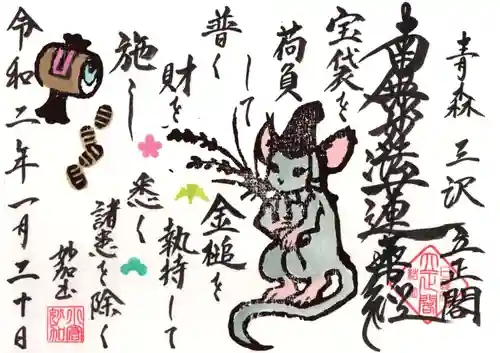 青森 三沢 立正閣
南無妙法蓮華経
宝袋を
荷負
して
普く
財を
施し
金槌を
執持して
悉く
諸患を除く
妙加
令和二年一月二十日